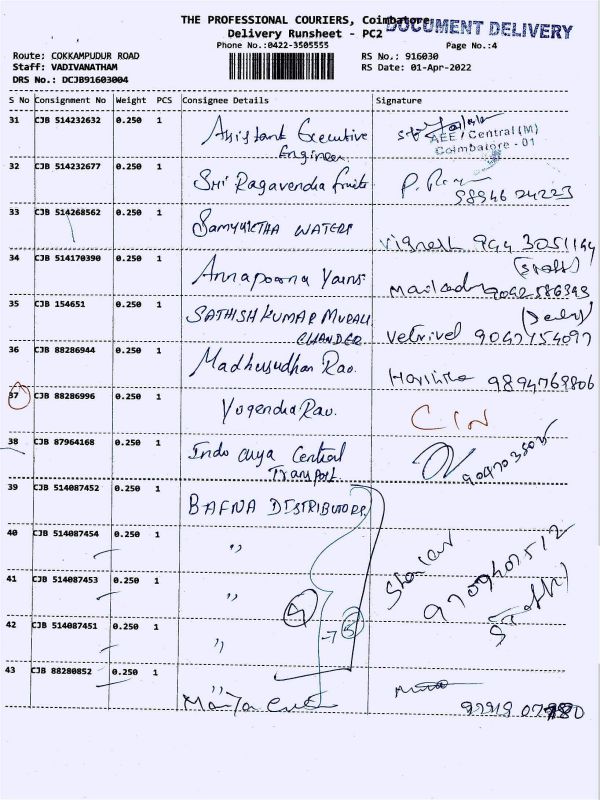 THE PROFESSIONAL COURIERS, Coimbatore
DOCUMENT DELIVERY
Delivery Runsheet - PC2
Phone No.:0422-3505555
Page No.:4
Route: COKKAMPUDUR ROAD
RS No.: 916030
Staff: VADIVANATHAM
RS Date: 01-Apr-2022
DRS No.: DCJB91603004
S No Consignment No Weight PCS Consignee Details Signature
31 CJB 514232632 0.250 1 Assistant Executive
Engineer
AEE / Central (M)
Coimbatore - 01
32 CJB 514232677 0.250 1 Sri Ragavendra fruits
98946 24223
33 CJB 514268562 0.250 1 Samyuktha WATERS
Vignesh 944 3051144
34 CJB 514170390 0.250 1 Annapoorna Yarns
(Staff)
35 CJB 154651 0.250 1 SATHISH KUMAR MURALI
CHANDER
Vetrivel 9042754097
36 CJB 88286944 0.250 1 Madhusudhan Rao.
9894769806
37 CJB 88286996 0.250 1 Yogendra Rao.
38 CJB 87964168 0.250 1 Indo arya Central
Transport
39 CJB 514087452 0.250 1 BAFNA DISTRIBUTORS
40 CJB 514087454 0.250 1 "
41 CJB 514087453 0.250 1 "
42 CJB 514087451 0.250 1 "
43 CJB 88280852 0.250 1 "